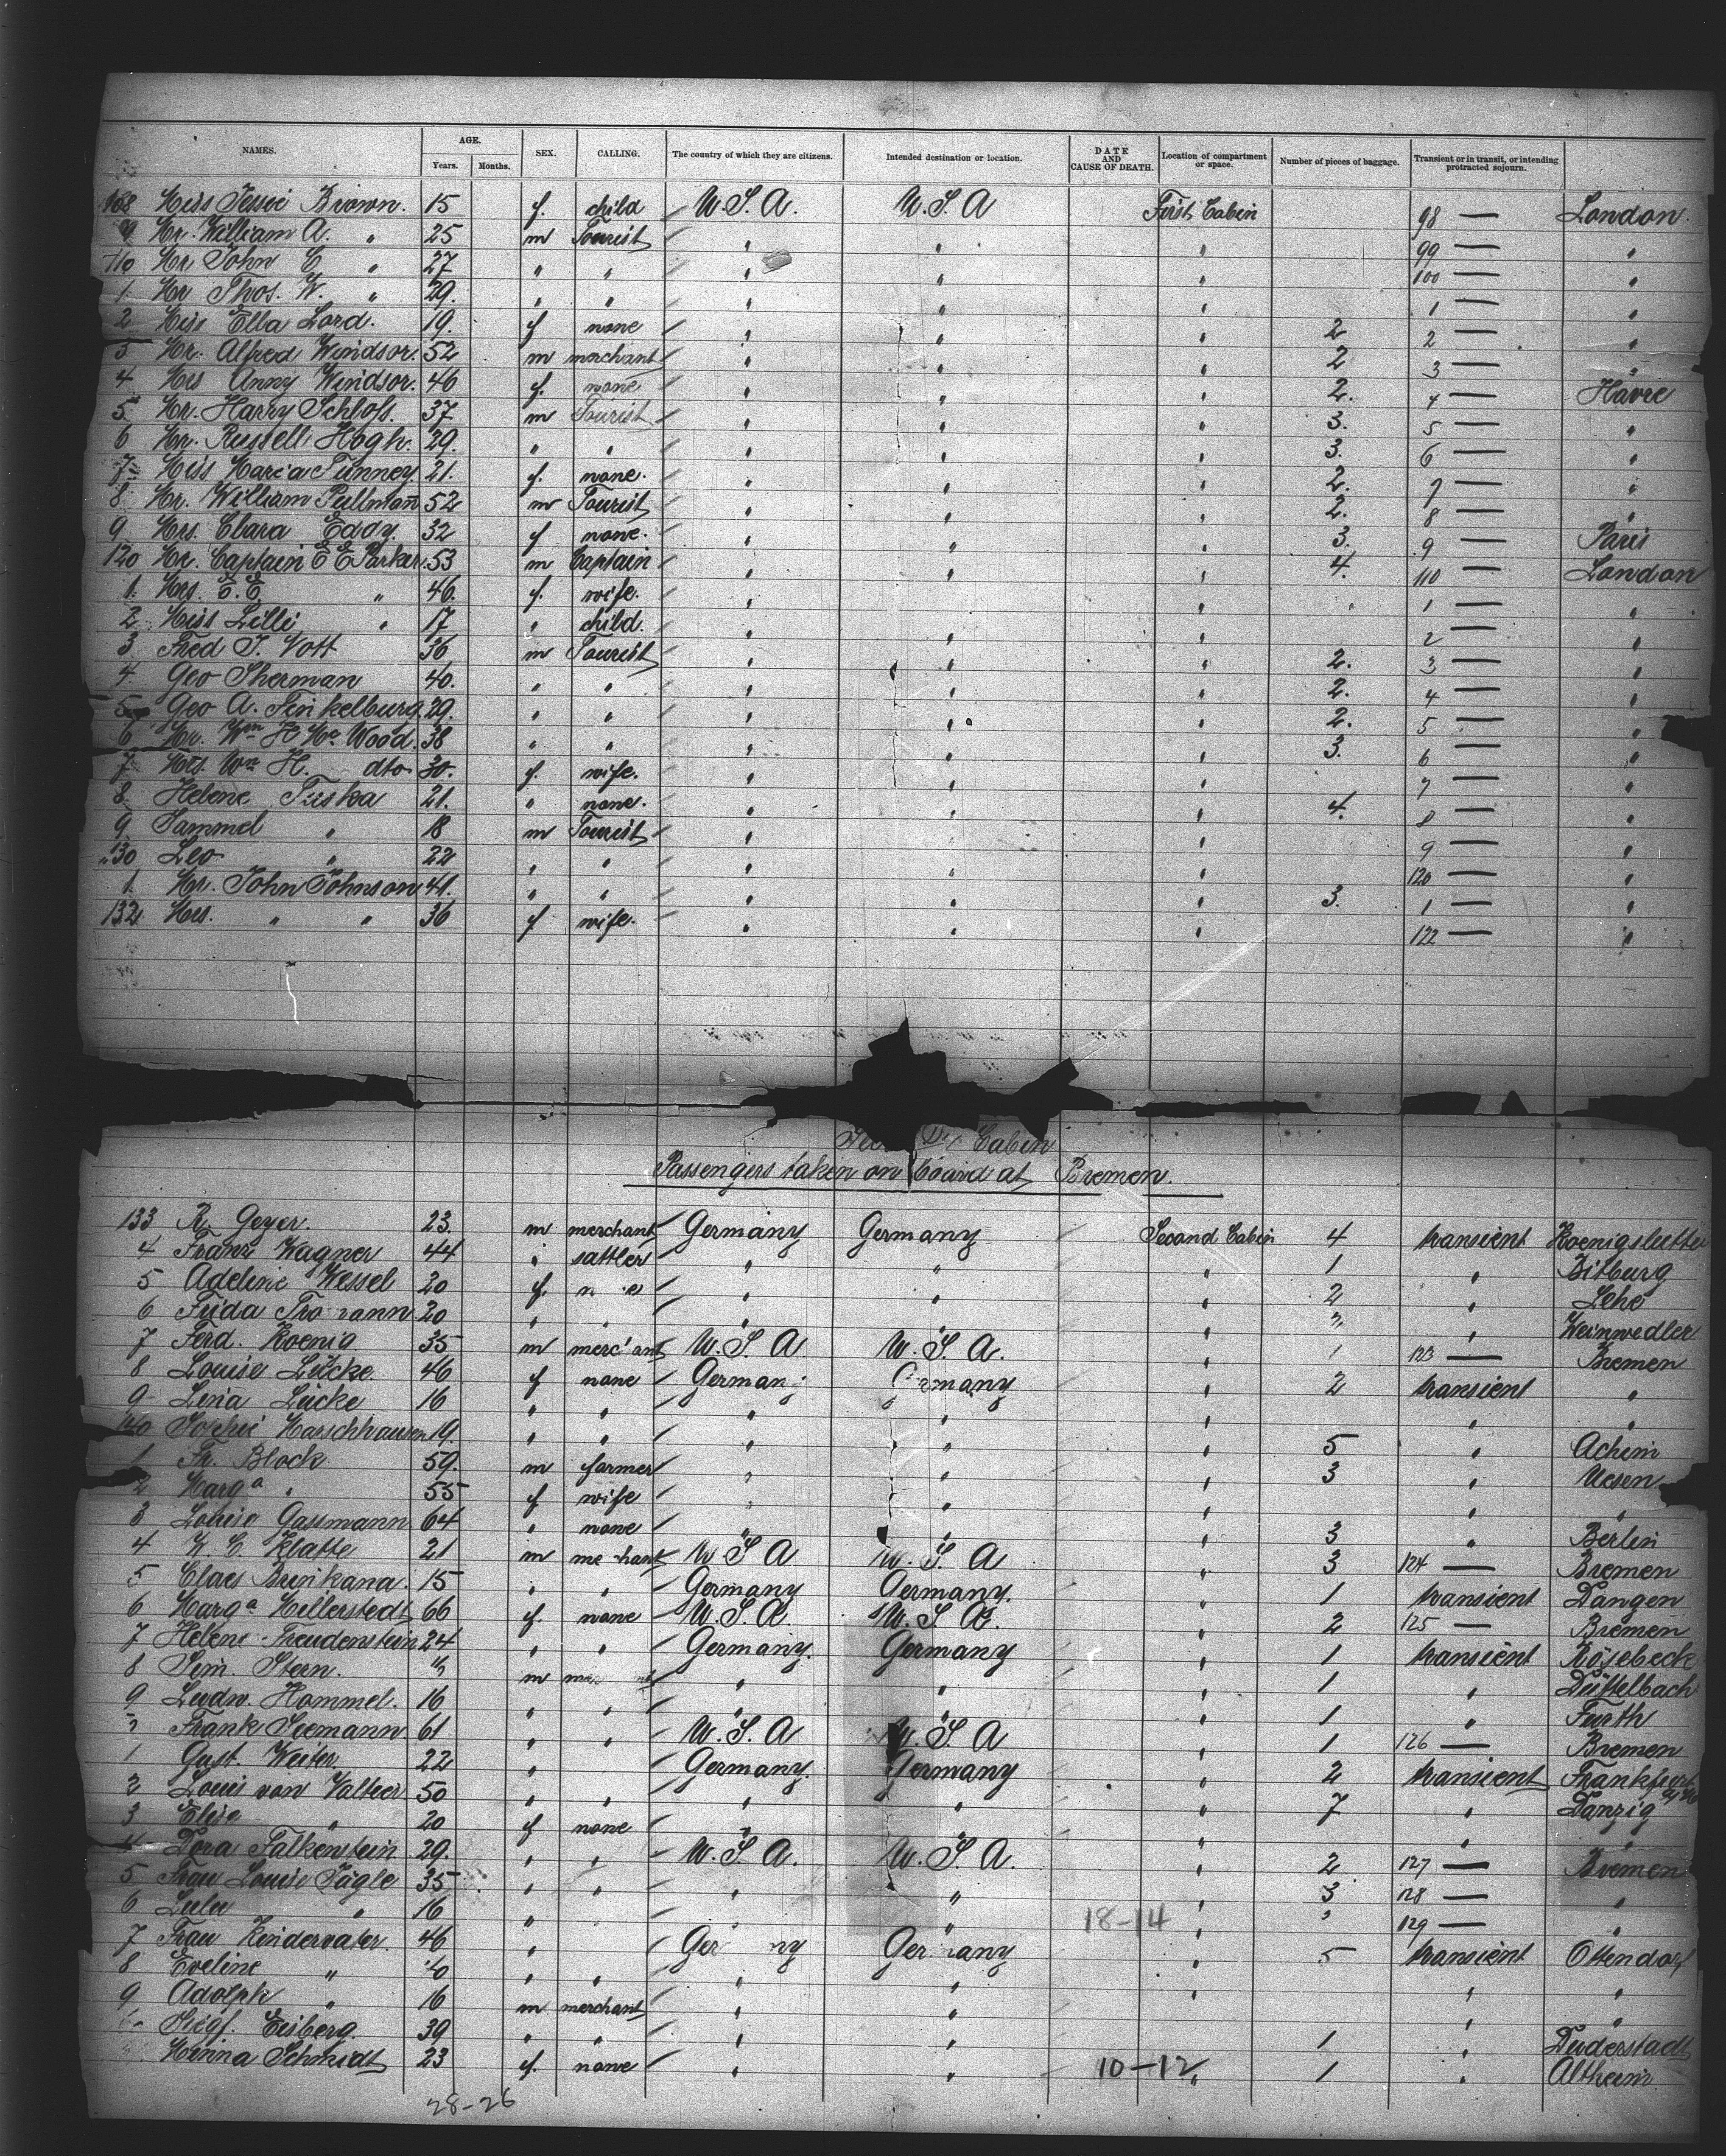 NAMES. AGE. Years. Months. SEX. CALLING. The country of which they are citizens. Intended destination or location. DATE AND CAUSE OF DEATH. Location of compartment or space. Number of pieces of baggage. Transient or in transit, or intending protracted sojourn.
108 Miss Jessie Brown. 15 f. child U.S.A. U.S.A First Cabin 98 — London.
9 Mr. William A. " 25 m Tourist " " " 99 — "
110 Mr John C " 27 " " " " " 100 — "
1. Mr Thos. W. " 29. " " " " " 1 — "
2 Miss Ella Lord. 19. f none " " " 2 2 — "
3 Mr. Alfred Windsor. 52 m merchant " " " 2 3 — "
4 Mrs Anny Windsor. 46 f. none " " " 2. 4 — Havre
5. Mr. Harry Schloss. 37 m Tourist " " " 3. 5 — "
6 Mr. Russell Hogh. 29. " " " " " 3. 6 — "
7 Miss Maria Tunney 21. f. none. " " " 2. 7 — "
8. Mr. William Pullmann 52 m Tourist " " " 2. 8 — "
9 Mrs. Clara Eddy. 32 f none. " " " 3. 9 — Paris
120 Mr. Captain E E Parker. 53 m Captain " " " 4. 110 — London
1. Mrs. E. E. " 46. f. wife. " " " 1 — "
2. Miss Lilli " 17 " child. " " " 2 — "
3. Fred J. Vott 36 m Tourist " " " 2. 3 — "
4 Geo Sherman 40. " " " " " 2. 4 — "
5 Geo A. Finkelburg. 29. " " " " " 2. 5 — "
6 Mr. Wm H Mc Wood. 38 " " " " " 3. 6 — "
7 Mrs. Wm H. dto 30. f. wife. " " " 7 — "
8. Helene Tuska 21. " none. " " " 4. 8 — "
9. Sammel " 18 m Tourist " " " 9 — "
130 Leo " 22 " " " " " 120 — "
1. Mr. John Johnson 41. " " " " " 3. 1 — "
132 Mrs. " " 36 f wife. " " " 122 — "
Cabin
Passengers taken on board at Bremen.
133 R. Geyer. 23. m merchant Germany Germany Second Cabin 4 transient Koenigslutter
4 Franz Wagner 44 " sattler " " " 1 " Bitburg
5 Adeline Wessel 20 f. " " " 2 " Lehe
6 Frida 20 " " " " " " " Weinwedler
7 Ferd. Koenig. 35 m U.S.A U.S.A. " 1 123 — Bremen
8 Louise Lücke. 46 f none Germany Germany " 2 transient "
9 Lina Lücke 16 " " " " " " "
140 Sophie Harschhausen 19. " " " " " 5 " Achim
1 Fr. Block 59. m farmer " " " 3 " Uesen
2 Marga " 55 f wife " " " " "
3 Louise Gassmann 64 " none " " " 3 " Berlin
4 Klatte 21 m U.S.A U.S.A " 3 124 — Bremen
5 Claes Brinkana. 15 " " Germany Germany. " 1 transient Dangen
6 Marga Hillerstedt 66 f. none U.S.A. U.S.A. " 2 125 — Bremen
7 Helene Freudenstein 24 " " Germany. Germany " 1 transient Rösebeck
8 Sim. Stern. m " " " 1 " Düttelbach
9 Ludw. Hommel. 16 " " " " " 1 " Furth
Frank Siemann 61 " " U.S.A U.S.A " 1 126 — Bremen
1 Gust. Weiter 22 " Germany. Germany " 2 transient Frankfurt a/M
2 Louis von Valtier 50 " " " " " 7 " Danzig
3 Elise " 20 f none " " " " "
4 Dora Falkenstein 29. " " U.S.A. U.S.A. " 2 127 — Bremen
5 Frau Louise Jägle 35 " " " " " 3 128 — "
6 Lulu " 16 " " " 18-14 " 129 — "
7 Frau Kindervater. 46 " Germany " 5 transient Ottendorf
8 Eveline " " " " " " " "
9 Adolph " 16 m merchant " " " "
Siegf. Eisberg. 39 " " " " 1 " Duderstadt
Minna Schmidt 23 f. none " " 10-12 " 1 " Altheim
28-26